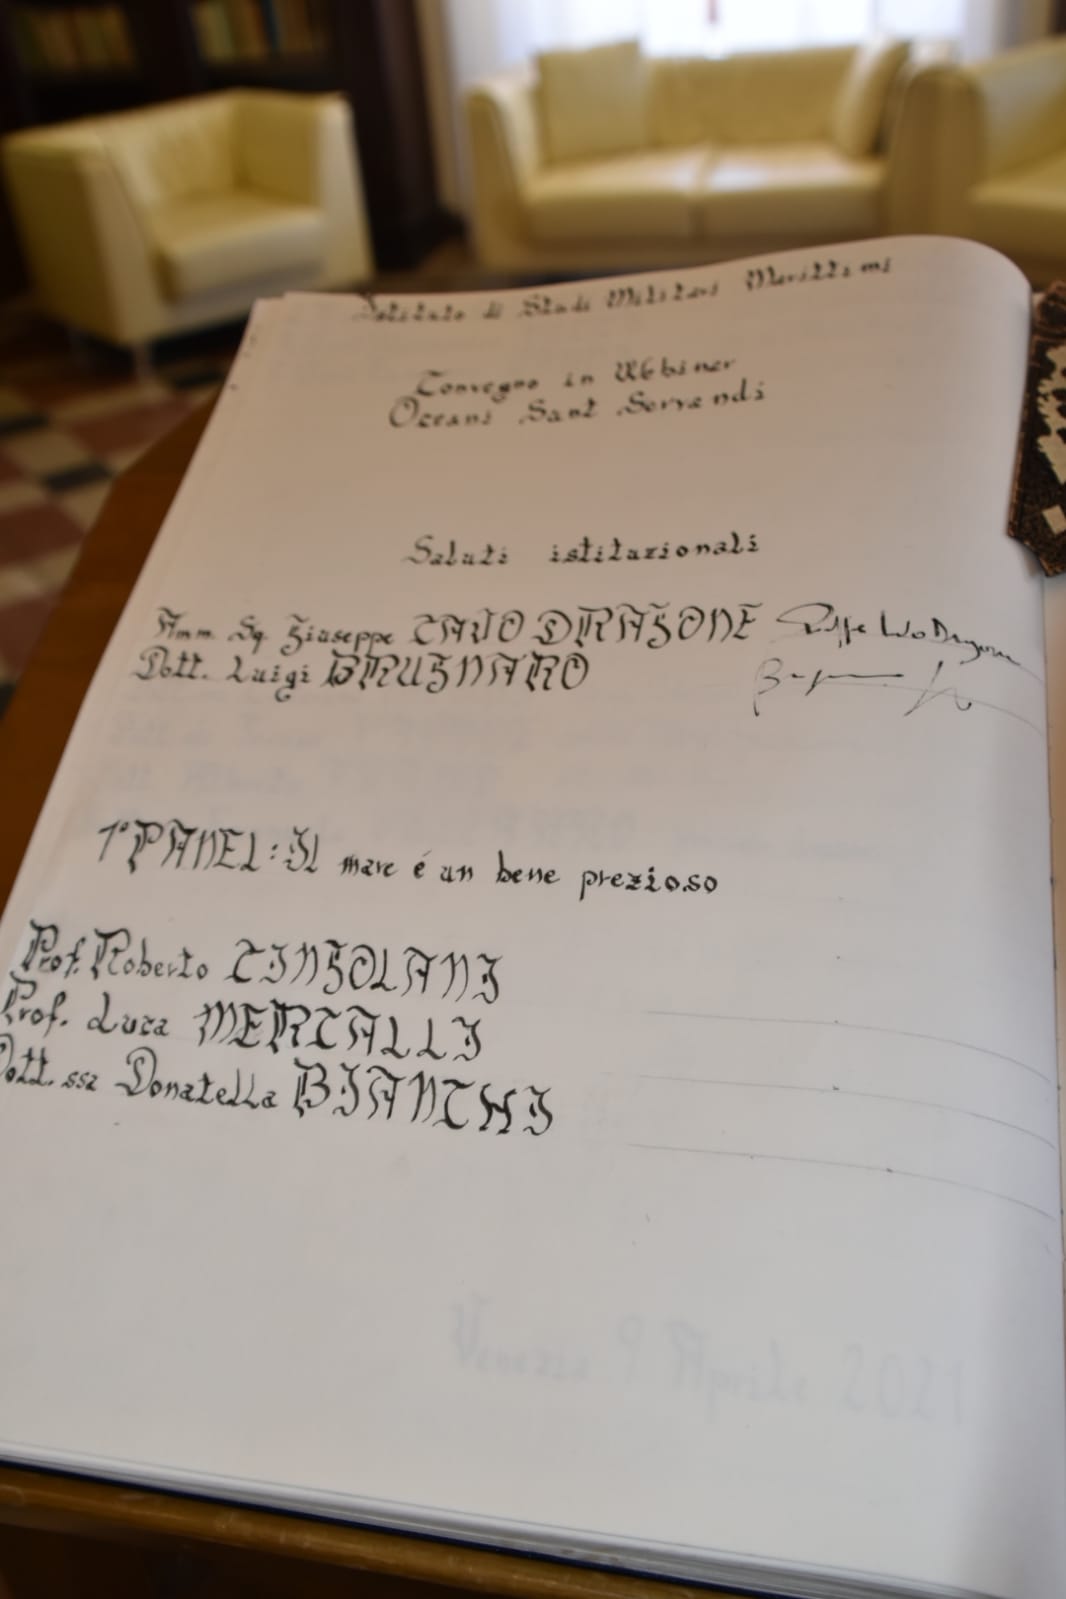 Istituto di Studi Militari Marittimi
Convegno in Webiner
Oceani Sani Serrandi
Saluti istituzionali
Amm. Sq. Giuseppe CAVO DRAGONE
Dott. Luigi BRUGNARO
1° PANEL: Il mare é un bene prezioso
Prof. Roberto CINGOLANI
Prof. Luca MERCALLI
Dott.ssa Donatella BIANCHI
Venezia 9 Aprile 2021